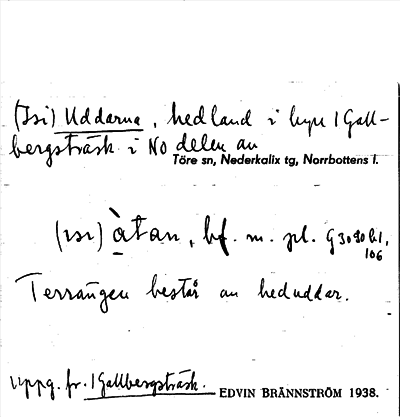 (Isi) Uddarna, hedland i byn 1 Gall-
bergsträsk i NO delen av
Töre sn, Nederkalix tg, Norrbottens l.
(ısı) àtan, bf. m. pl.
106
Terrängen består av heduddar.
Uppg. fr. 1 Gallbergsträsk.
EDVIN BRÄNNSTRÖM 1938.